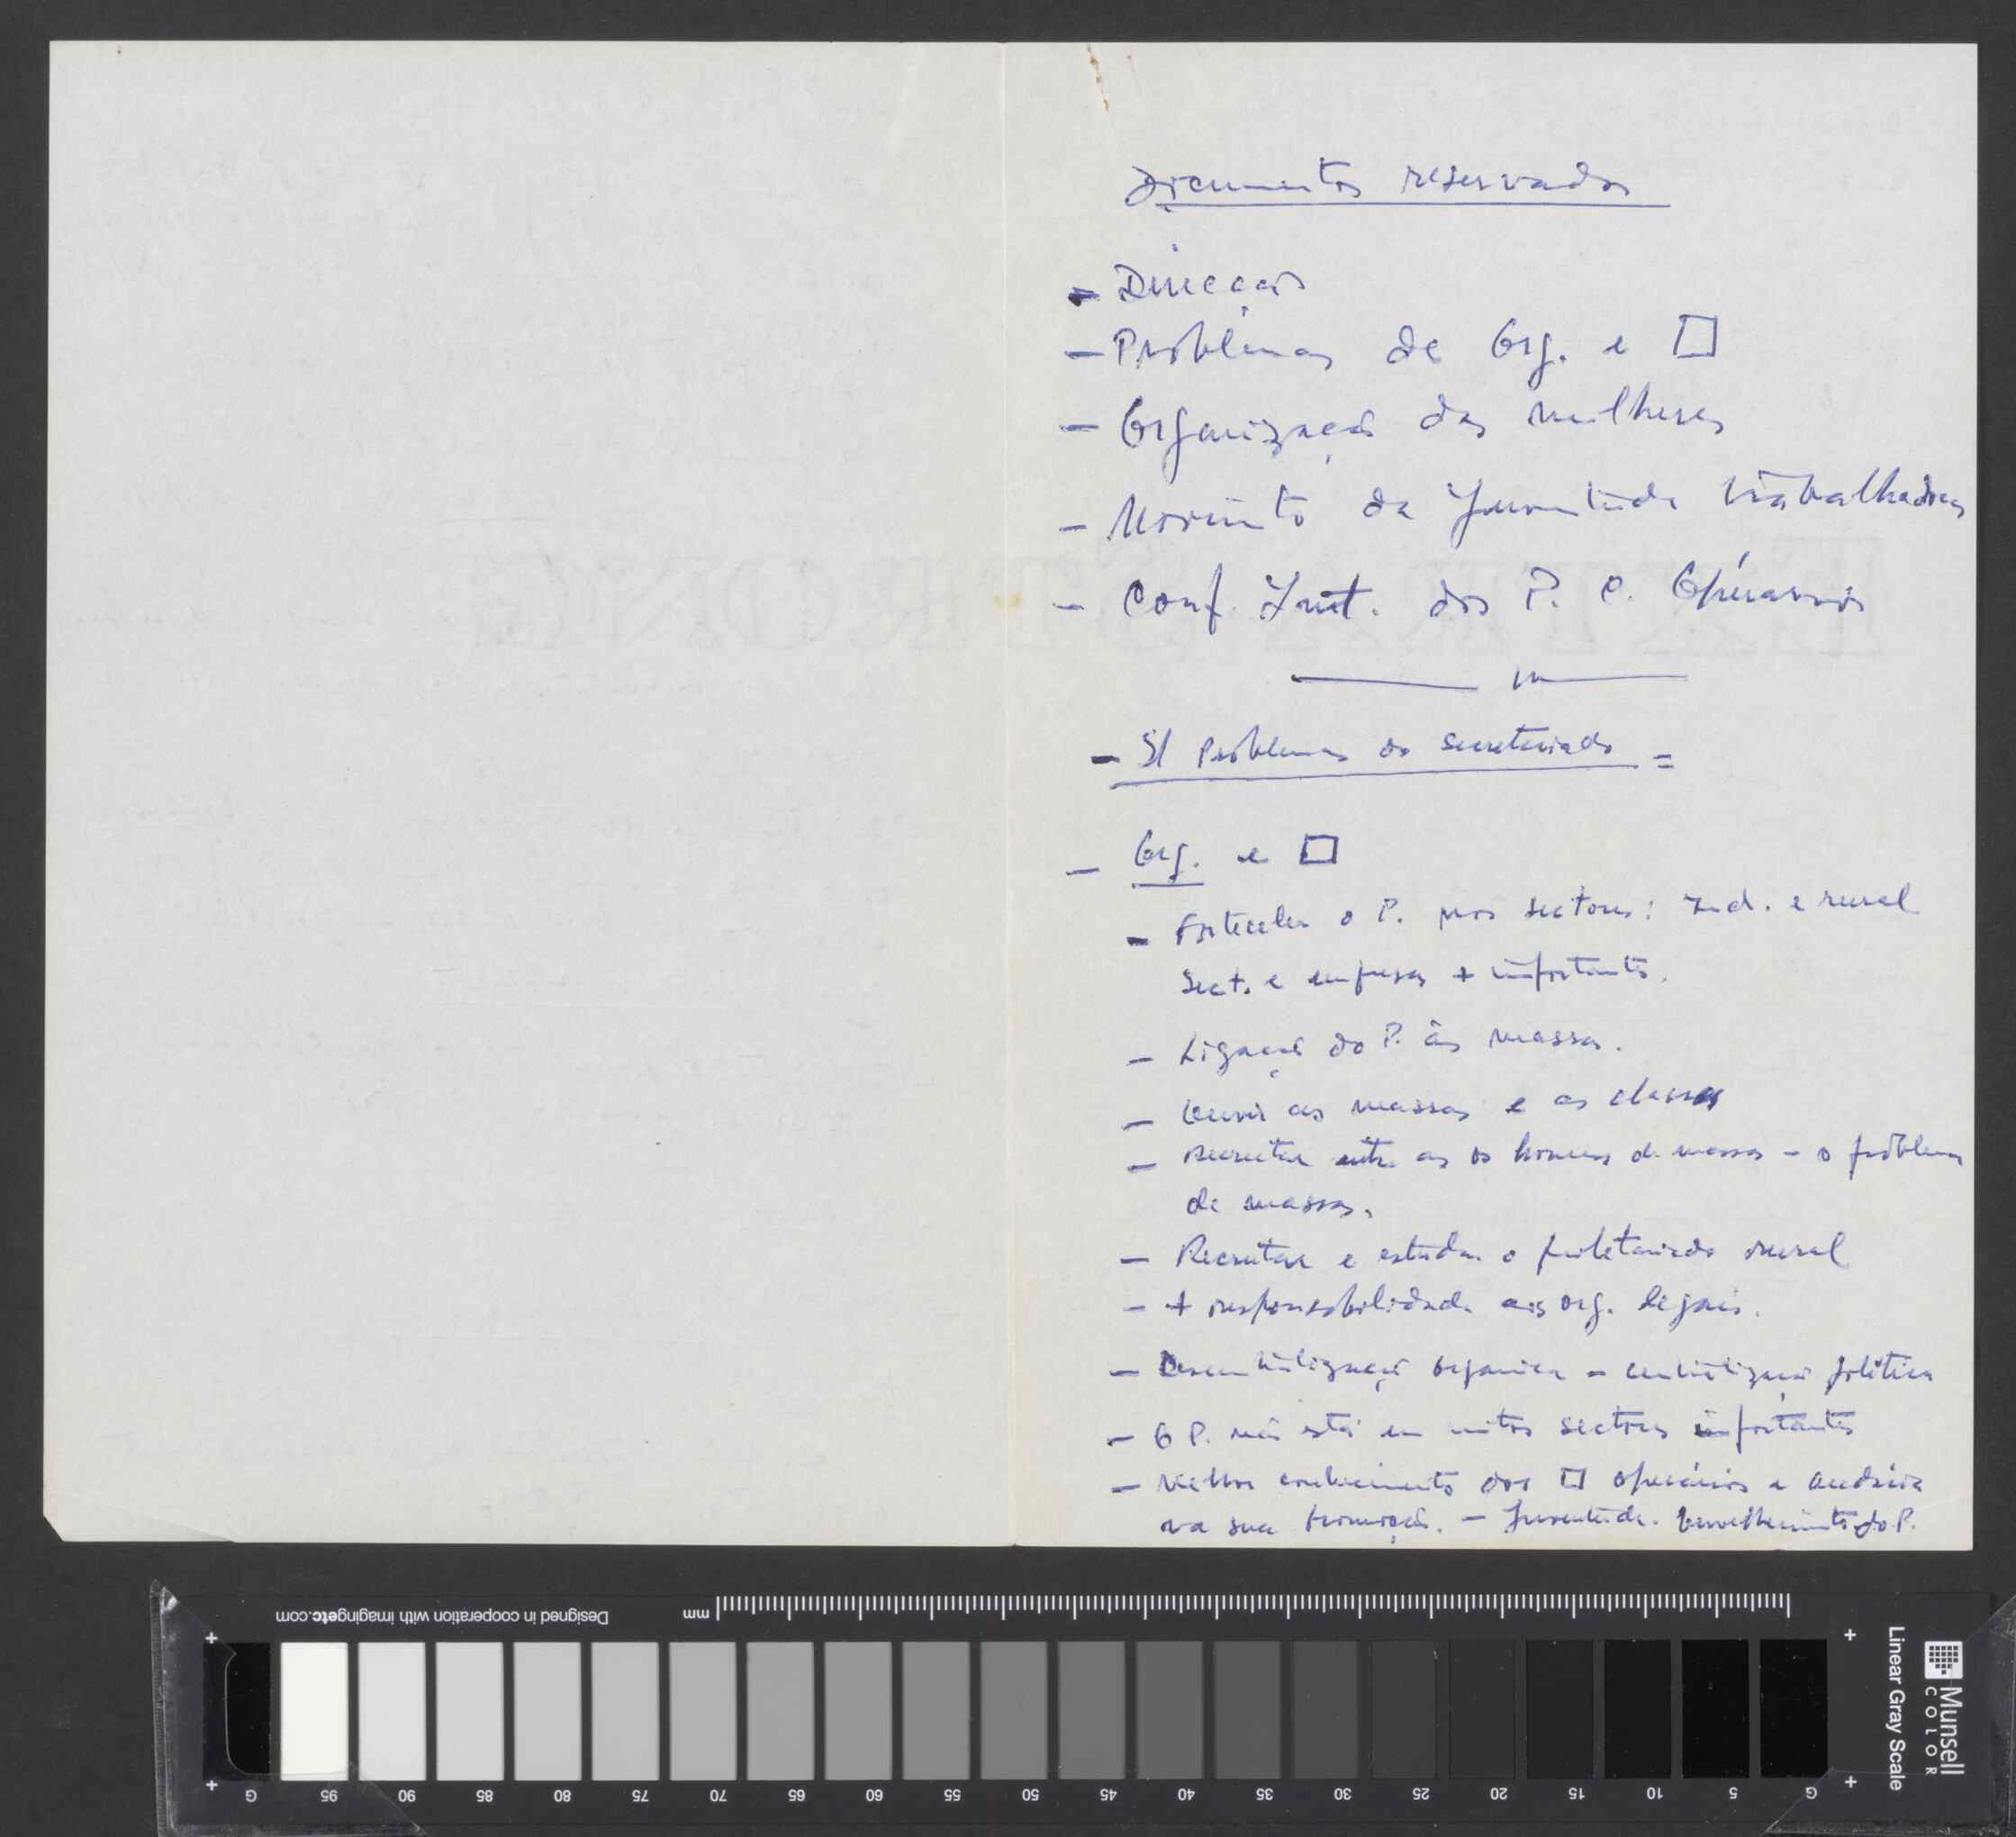 Documentos reservados
- Direcção
- Problemas de Org. e □
- Organização das mulheres
- Movimento da Juventude trabalhadora
- Conf. Int. dos P. C. Operários
- S/ Problemas do Secretariado =
- Org. e □
- Fortalecer o P. nos sectores: Ind. e rural
Sect. e empresas + importantes.
- Ligação do P. às massas.
- Ouvir as massas e as classes
- Recrutar entre as os homens de massas - o problema
de massas.
- Recrutar e estudar o proletariado rural
- + responsabilidade às org. legais.
- Descentralização orgânica - centralização política
- O P. não está em muitos sectores importantes
- Melhor conhecimento dos □ operários e audácia
na sua promoção. - Juventude. Envelhecimento do P.
Designed in cooperation with imagingetc.com
mm
G 95 90 85 80 75 70 65 60 55 50 45 40 35 30 25 20 15 10 5 G
Linear Gray Scale
Munsell
COLOR